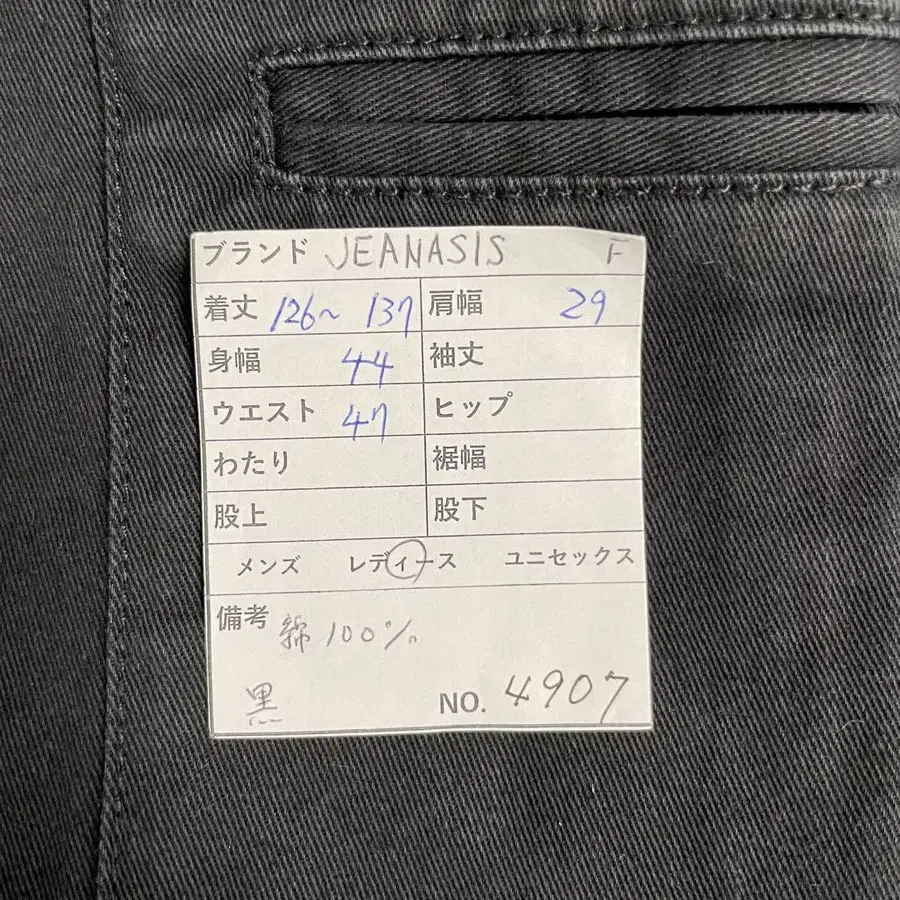 ブランド JEANASIS F
着丈 126~137 肩幅 29
身幅 44 袖丈
ウエスト 47 ヒップ
わたり 裾幅
股上 股下
メンズ レディース ユニセックス
備考 綿100%
黒 NO. 4907